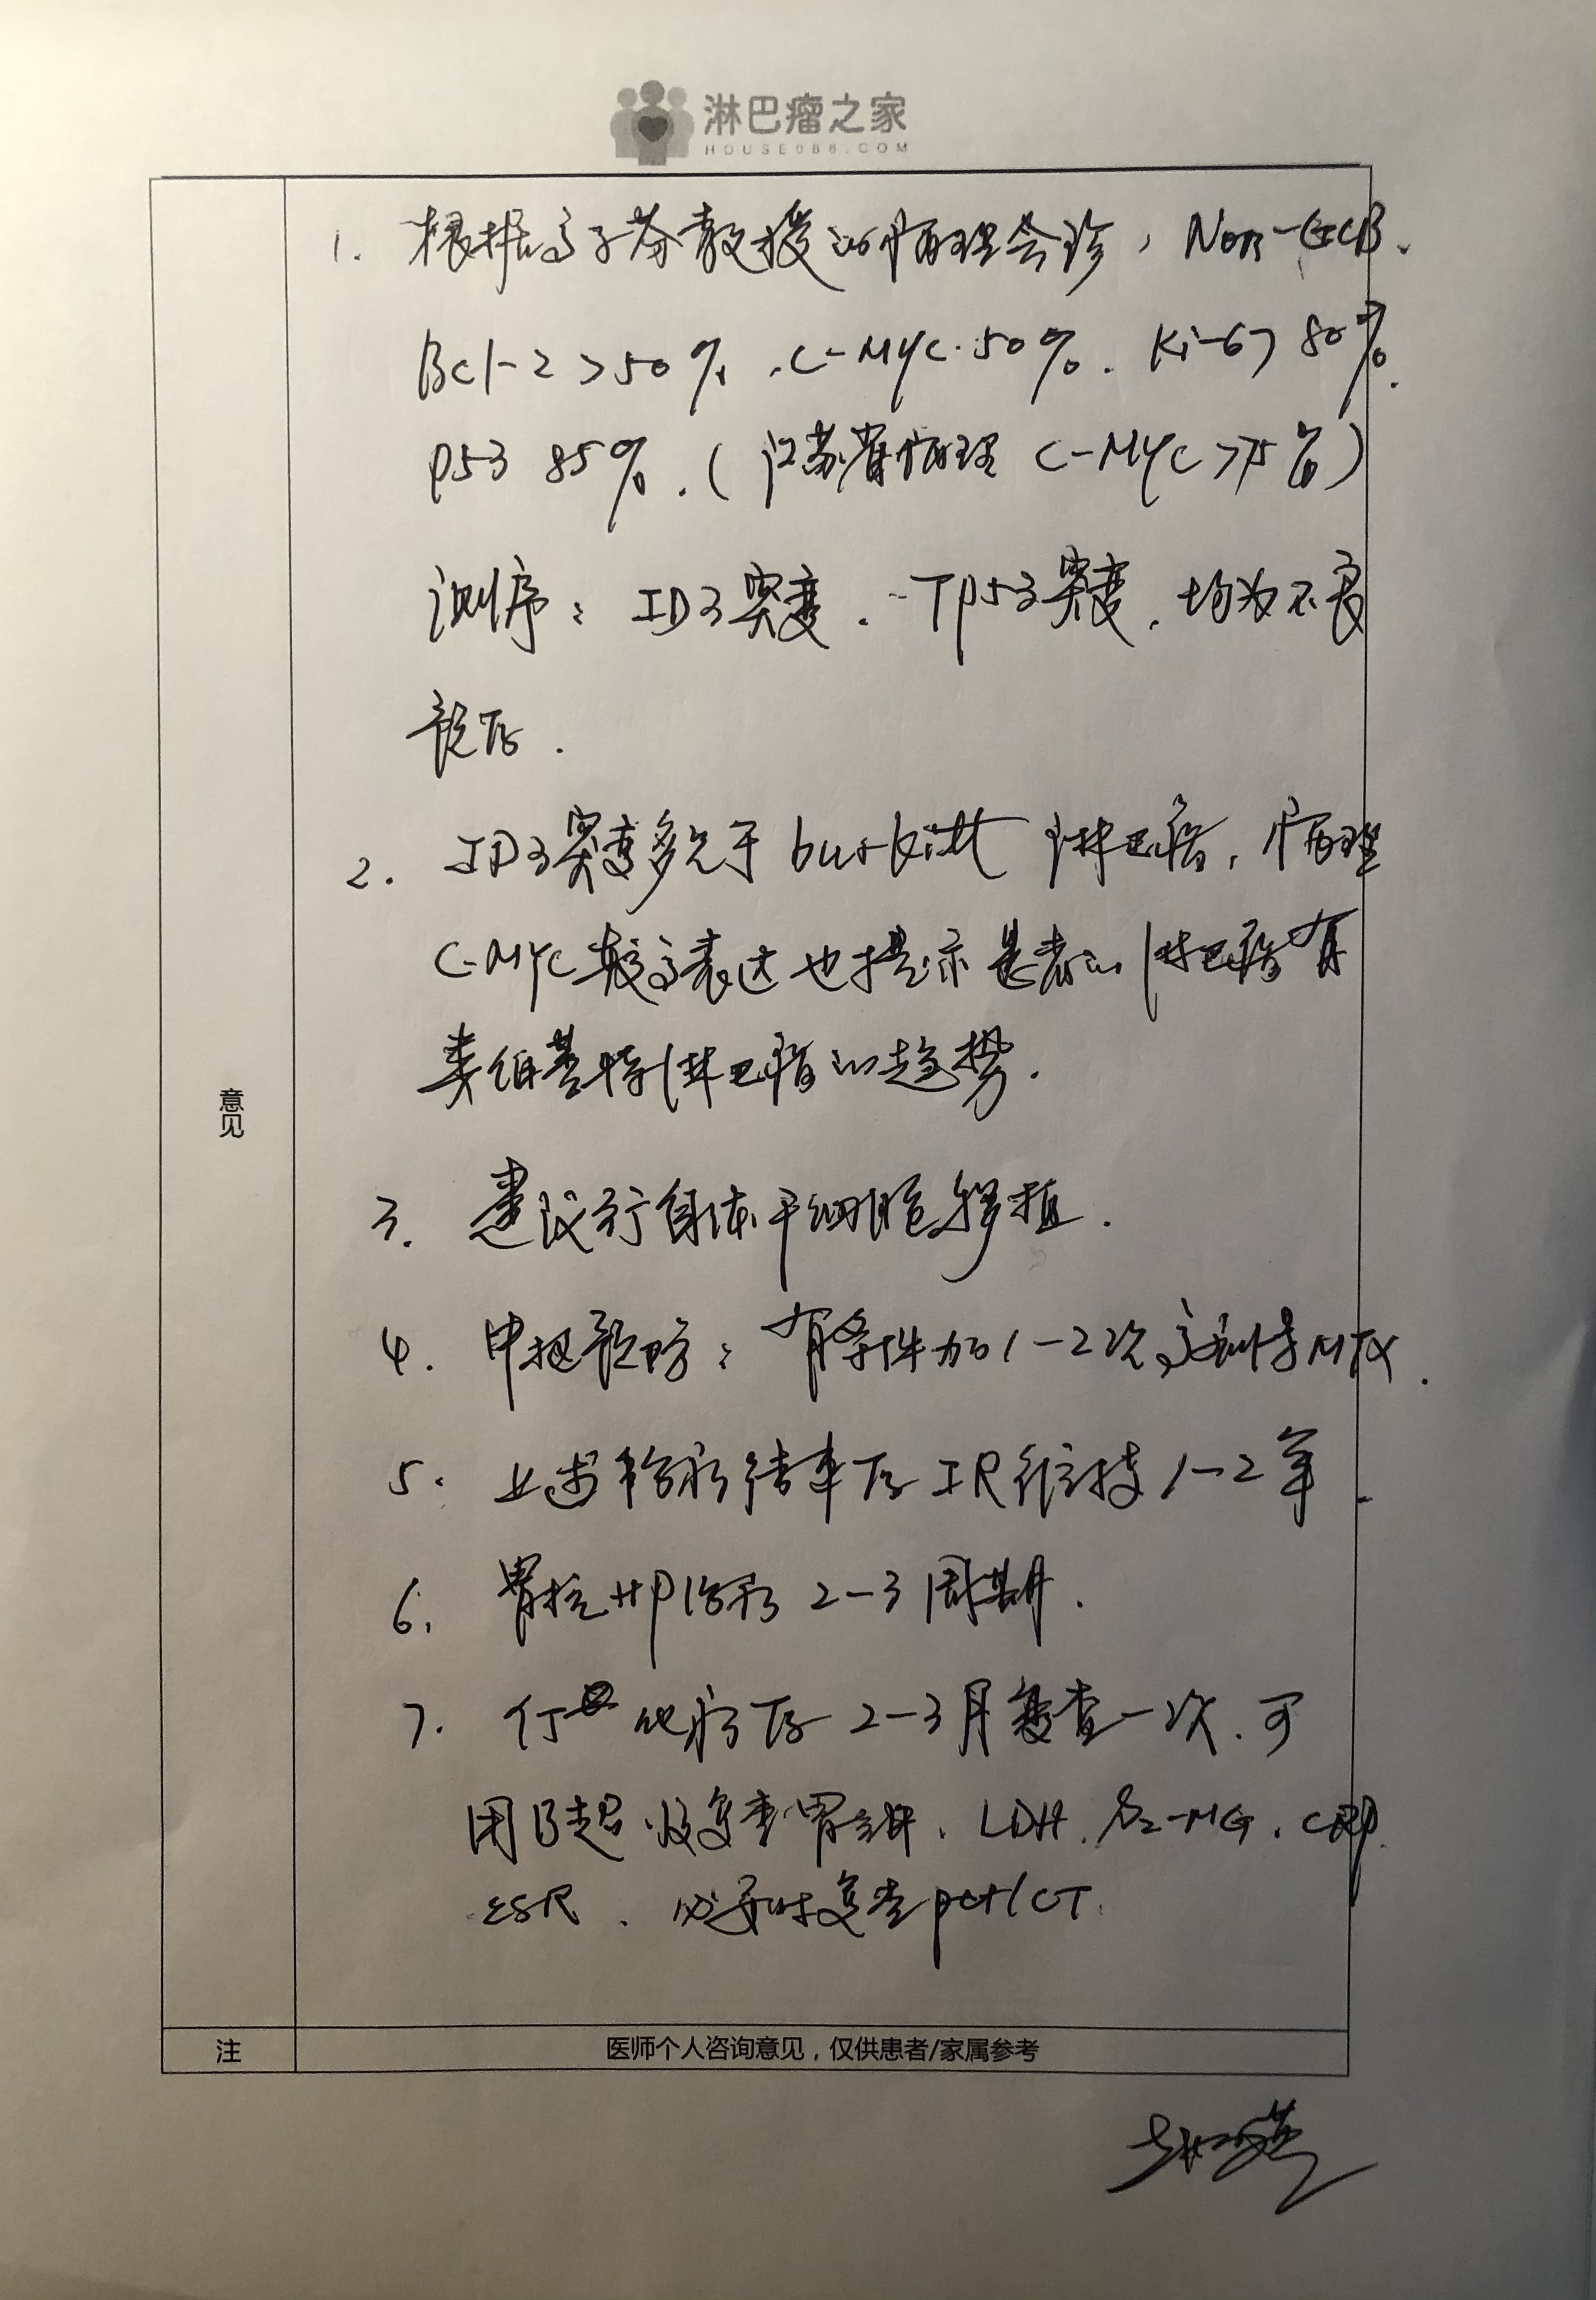 淋巴瘤之家
HOUSE086.COM
1. 根据高子芬教授的病理会诊，Non-GCB.
Bcl-2>50%，C-MYC 50%. Ki-67 80%.
P53 85%.（江苏省病理 C-MYC>75%）
测序：ID3突变. TP53突变，均为不良
预后.
2. ID3突变多见于burkitt 淋巴瘤，病理
C-MYC较高表达也提示患者的淋巴瘤有
类伯基特淋巴瘤的趋势.
3. 建议行自体干细胞移植.
4. 中枢预防：有条件加1-2次高剂量MTX.
意见
5. 上述治疗结束后IR维持1-2年.
6. 胃抗HP治疗2-3周期.
7. 行 化疗后2-3月复查一次. 可
用B超 复查胃镜. LDH. β2-MG. CRP.
ESR. 必要时复查pet/CT.
注
医师个人咨询意见，仅供患者/家属参考